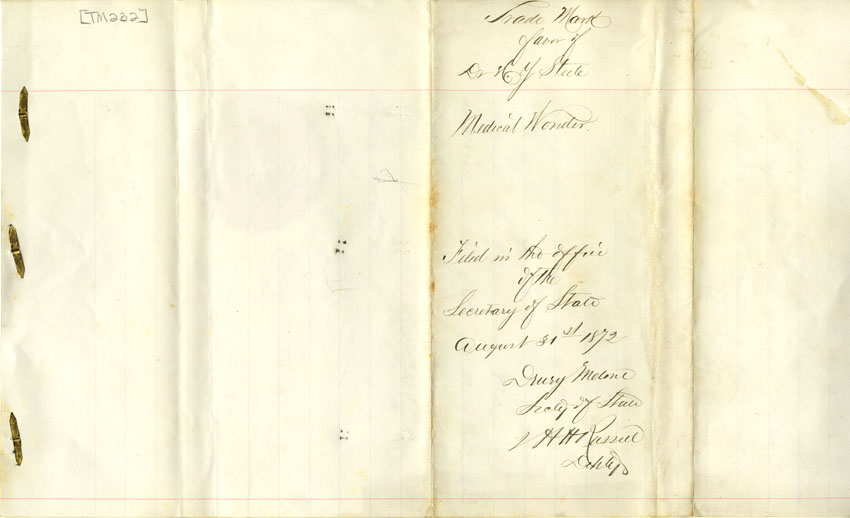 [TM232]
Trade Mark
favor of
Dr H. G Steele
Medical Wonder.
Filed in the office
of the
Secretary of State
August 31st 1872
Drury Melone
Secty of State
H H Russell
Depty